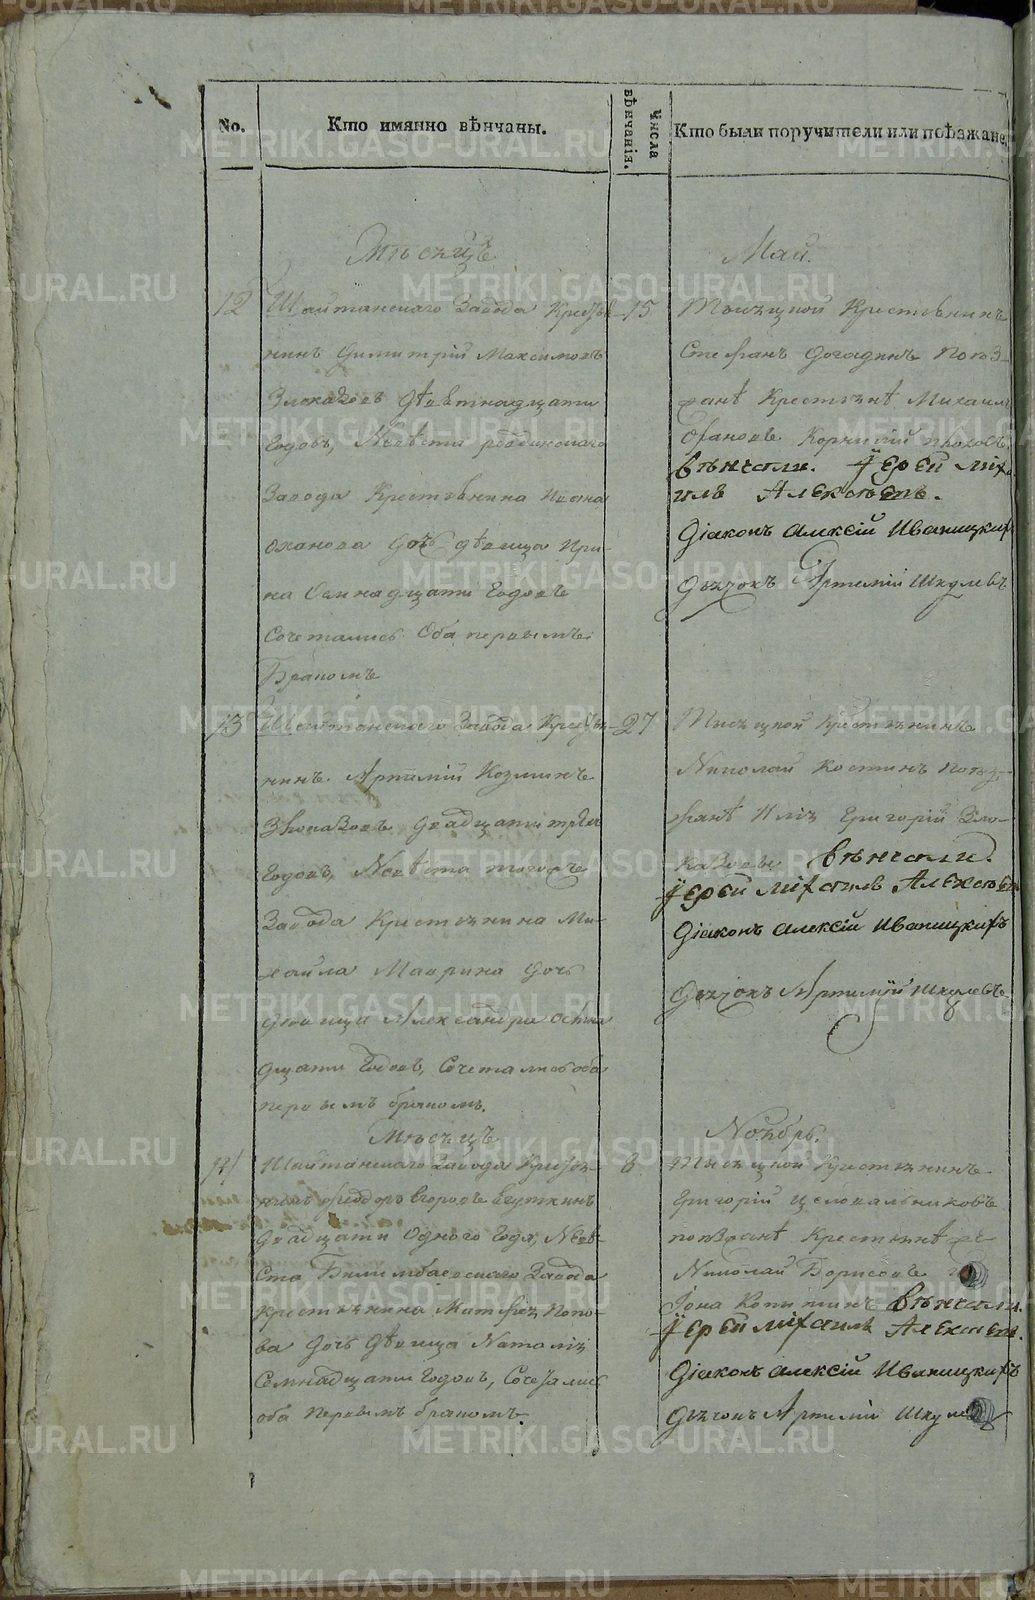 No.
Кто имянно вѣнчаны.
Числа вѣнчанія.
Кто были поручители или поѣзжане.
Мѣсяцъ
Май.
12
Шайтанскаго Завода Крестья-
нинъ Димитрій Максимовъ
Злоказовъ девятнадцати
Годовъ, Невѣста
Завода Крестьянина Ивана
дочь девица Ири-
на Семнадцати Годовъ
Сочетались Оба первымъ
Бракомъ
15
Тысяцкой Крестьянинъ
Стефанъ Догадинъ Поѣз-
жанѣ Крестьянѣ Михаилъ
Корнилій
вѣнчали. Іерей Миха-
илъ Алексѣевъ.
Діаконъ Алексій Иваницкихъ
Дьячокъ Артемій Шкулевъ
13
Шайтанскаго Завода Крестья-
нинъ Артемій Козминъ
Злоказовъ Двадцати трехъ
Годовъ, Невѣста тогоже
Завода Крестьянина Ми-
хайла Маврина Дочь
девица Александра осмна
дцати Годовъ, Сочетались оба
первымъ бракомъ.
27
Тысяцкой Крестьянинъ
Николай Костинъ Поѣз-
жанѣ Илія Григорій Зло-
казовы вѣнчали.
Іерей Михаилъ Алексѣевъ
Діаконъ Алексій Иваницкихъ
Дьячокъ Артемій Шкулевъ
Мѣсяцъ
Ноябрь.
14
Шайтанскаго Завода Крестья-
нинъ Феодоръ Егоровъ
Двадцати Одного Года, Невѣ-
ста Билимбаевскаго Завода
Крестьянина Матфея Попо-
ва Дочь Девица Наталія
Семнадцати Годовъ, Сочетались
оба первымъ бракомъ.
8
Тысяцкой Крестьянинъ
Григорій Целовальниковъ
поѣзжанѣ Крестьянѣ
Николай Борисовъ
Іона Копытинъ вѣнчали.
Іерей Михаилъ Алексѣевъ.
Діаконъ Алексій Иваницкихъ
Дьячокъ Артемій Шкулевъ
METRIKI.GASO-URAL.RU